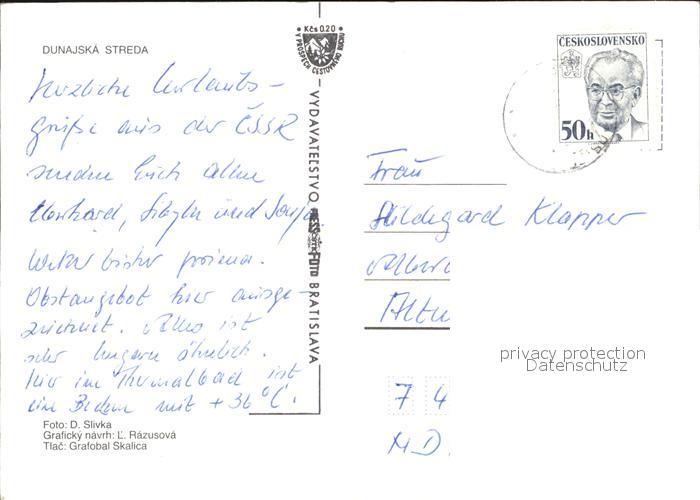 DUNAJSKÁ STREDA
Herzliche Urlaubs-
grüße aus der ČSSR
senden Euch allen
Eberhard, Sibylle und Sonja.
Wetter bisher prima.
Obstangebot hier ausge-
zeichnet. Alles ist
sehr Ungarn ähnlich.
Hier im Thermalbad ist
ein Becken mit +36°C.
Foto: D. Slivka
Grafický návrh: Ľ. Rázusová
Tlač: Grafobal Skalica
Kčs 0.20
V PROSPECH CESTOVNÉHO RUCHU
VYDAVATEĽSTVO BRATISLAVA
ČESKOSLOVENSKO
50h
Frau
Hildegard Klapper
Albert
Alte
privacy protection
Datenschutz
7 4
MD